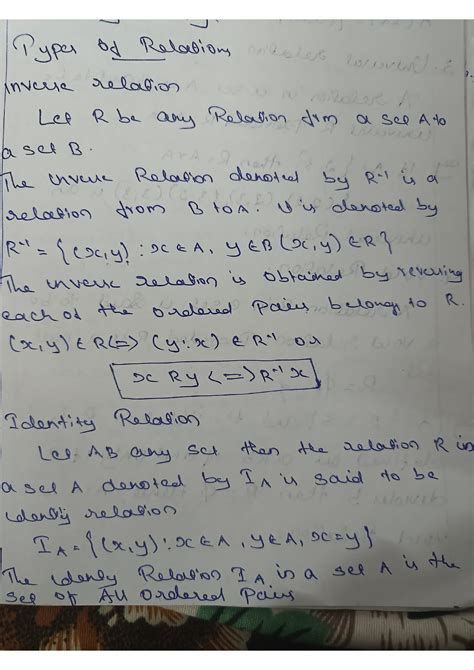 Types of Relations
inverse relation
Let R be any Relation from a set A to
a set B.
The inverse Relation denoted by R⁻¹ is a
relation from B to A. It is denoted by
R⁻¹ = {(x,y) : x ∈ A, y ∈ B (x,y) ∈ R}
The inverse relation is obtained by reversing
each of the ordered pairs belong to R.
(x,y) ∈ R <=> (y:x) ∈ R⁻¹ or
x R y <=> R⁻¹ x
Identity Relation
Let AB any set then the relation R in
a set A denoted by I_A is said to be
identy relation
I_A = {(x,y) : x ∈ A, y ∈ A, x = y}
The identy Relation I_A in a set A is the
set of All ordered Pairs